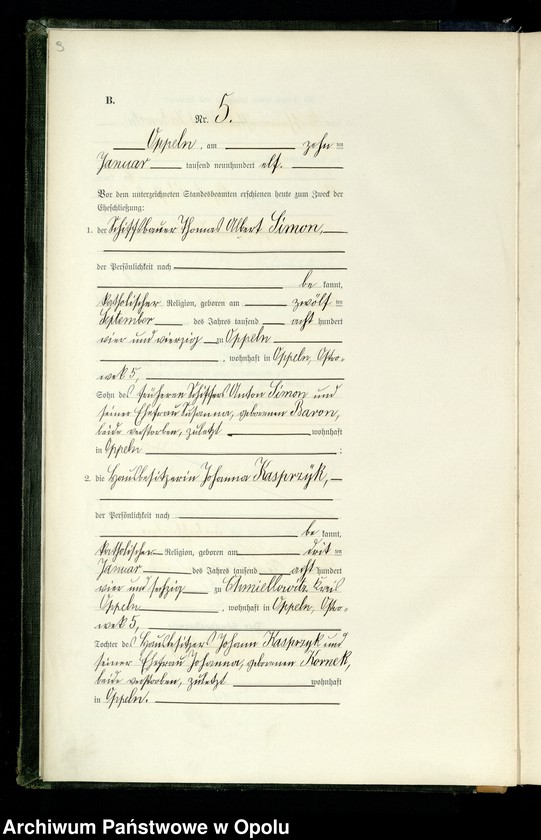 9
B.
Nr. 5.
Oppeln, am zehn ten
Januar tausend neunhundert elf.
Vor dem unterzeichneten Standesbeamten erschienen heute zum Zweck der
Eheschließung:
1. der Schiffsbauer Thomas Albert Simon,
der Persönlichkeit nach
be kannt,
katholischer Religion, geboren am zwölf ten
September des Jahres tausend acht hundert
vier und vierzig zu Oppeln
, wohnhaft in Oppeln, Ostro-
wek 5,
Sohn des früheren Schiffers Anton Simon und
seiner Ehefrau Susanna, geborenen Baron,
beide verstorben, zuletzt wohnhaft
in Oppeln ;
2. die Hausbesitzerin Johanna Kasprzÿk,
der Persönlichkeit nach
be kannt,
katholischer Religion, geboren am drit ten
Januar des Jahres tausend acht hundert
vier und sechzig zu Chmiellowitz, Kreis
Oppeln , wohnhaft in Oppeln, Ostro-
wek 5,
Tochter des Hausbesitzers Johann Kasprzyk und
seiner Ehefrau Johanna, geborenen Kornek,
beide verstorben, zuletzt wohnhaft
in Oppeln.
Archiwum Państwowe w Opolu